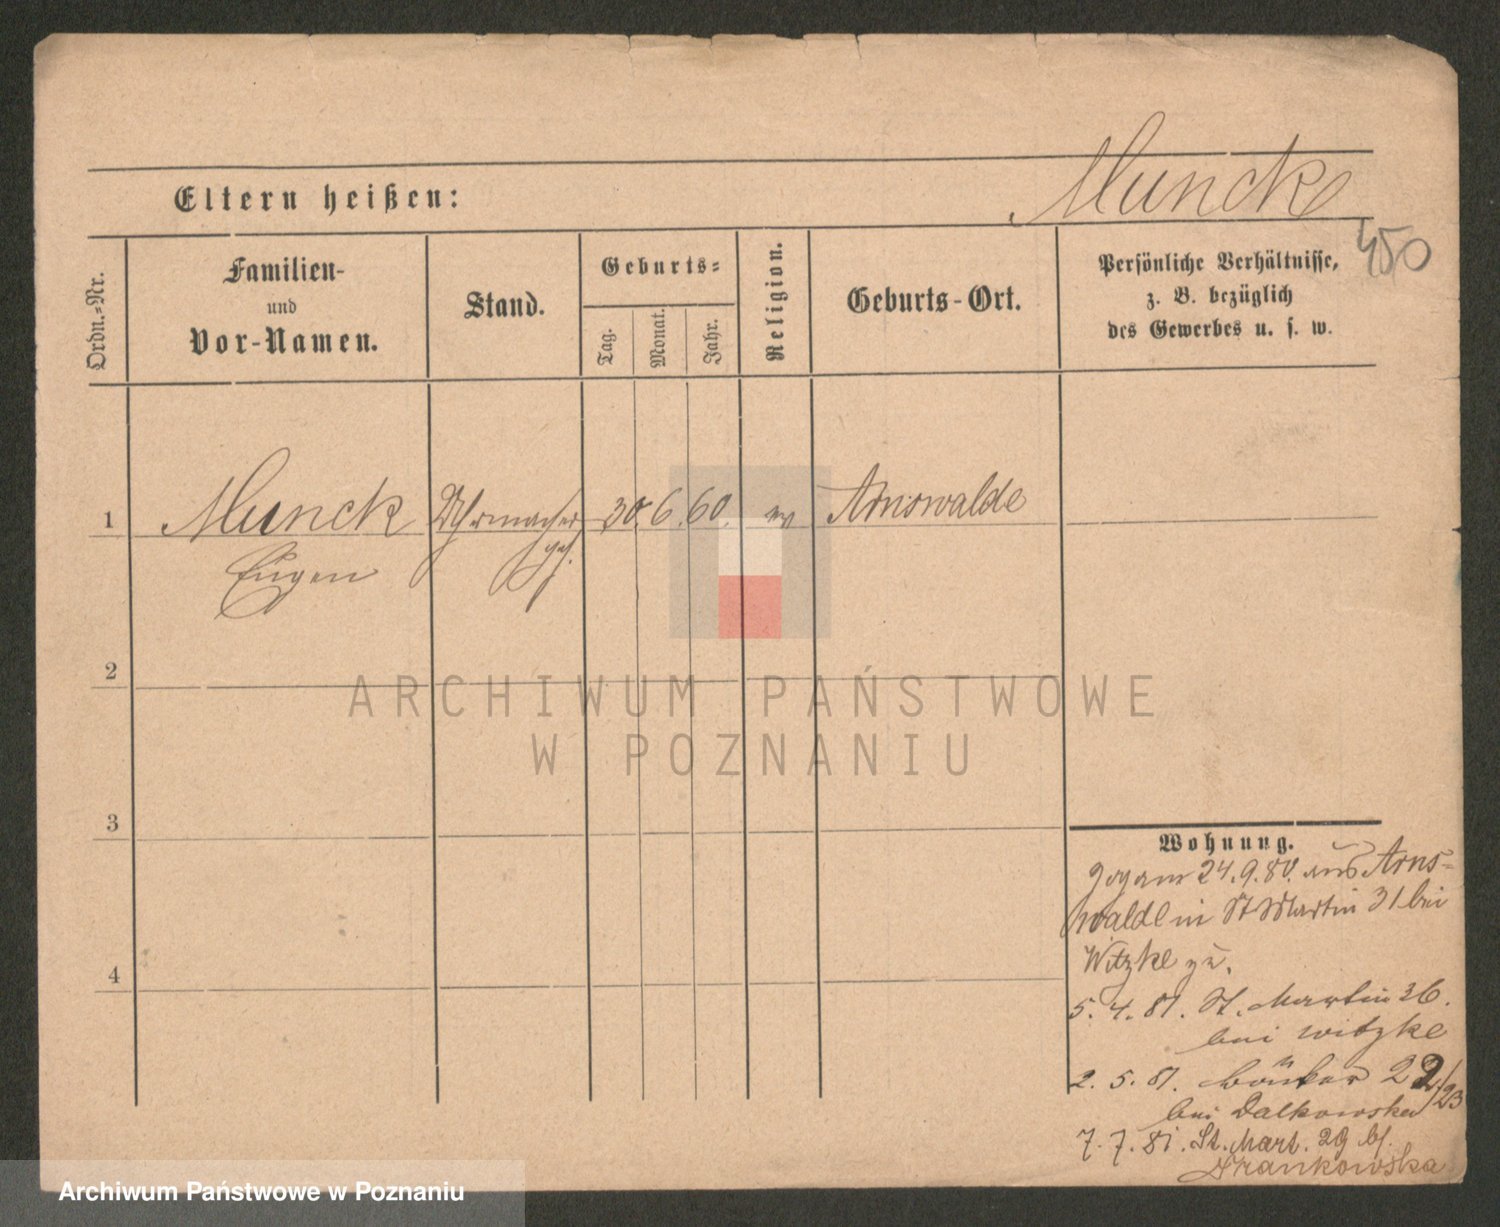 Munck
Eltern heißen:
450
Ordn.-Nr.
Familien-
und
Vor-Namen.
Stand.
Geburts-
Tag.
Monat.
Jahr.
Religion.
Geburts-Ort.
Persönliche Verhältnisse,
z. B. bezüglich
des Gewerbes u. s. w.
1
Munck Uhrmacher 30. 6. 60. ev Arnswalde
Eugen
2
ARCHIWUM PAŃSTWOWE
W POZNANIU
3
Wohnung.
24.9.80. aus Arns-
walde in St Martin 31 bei
Witzke zu.
4
5. 4. 81. St. Martin 36.
bei Witzke
2. 5. 81. 22/23
bei Dalkowska
7. 7. 81. St. Mart. 29 bei
Frankowska
Archiwum Państwowe w Poznaniu